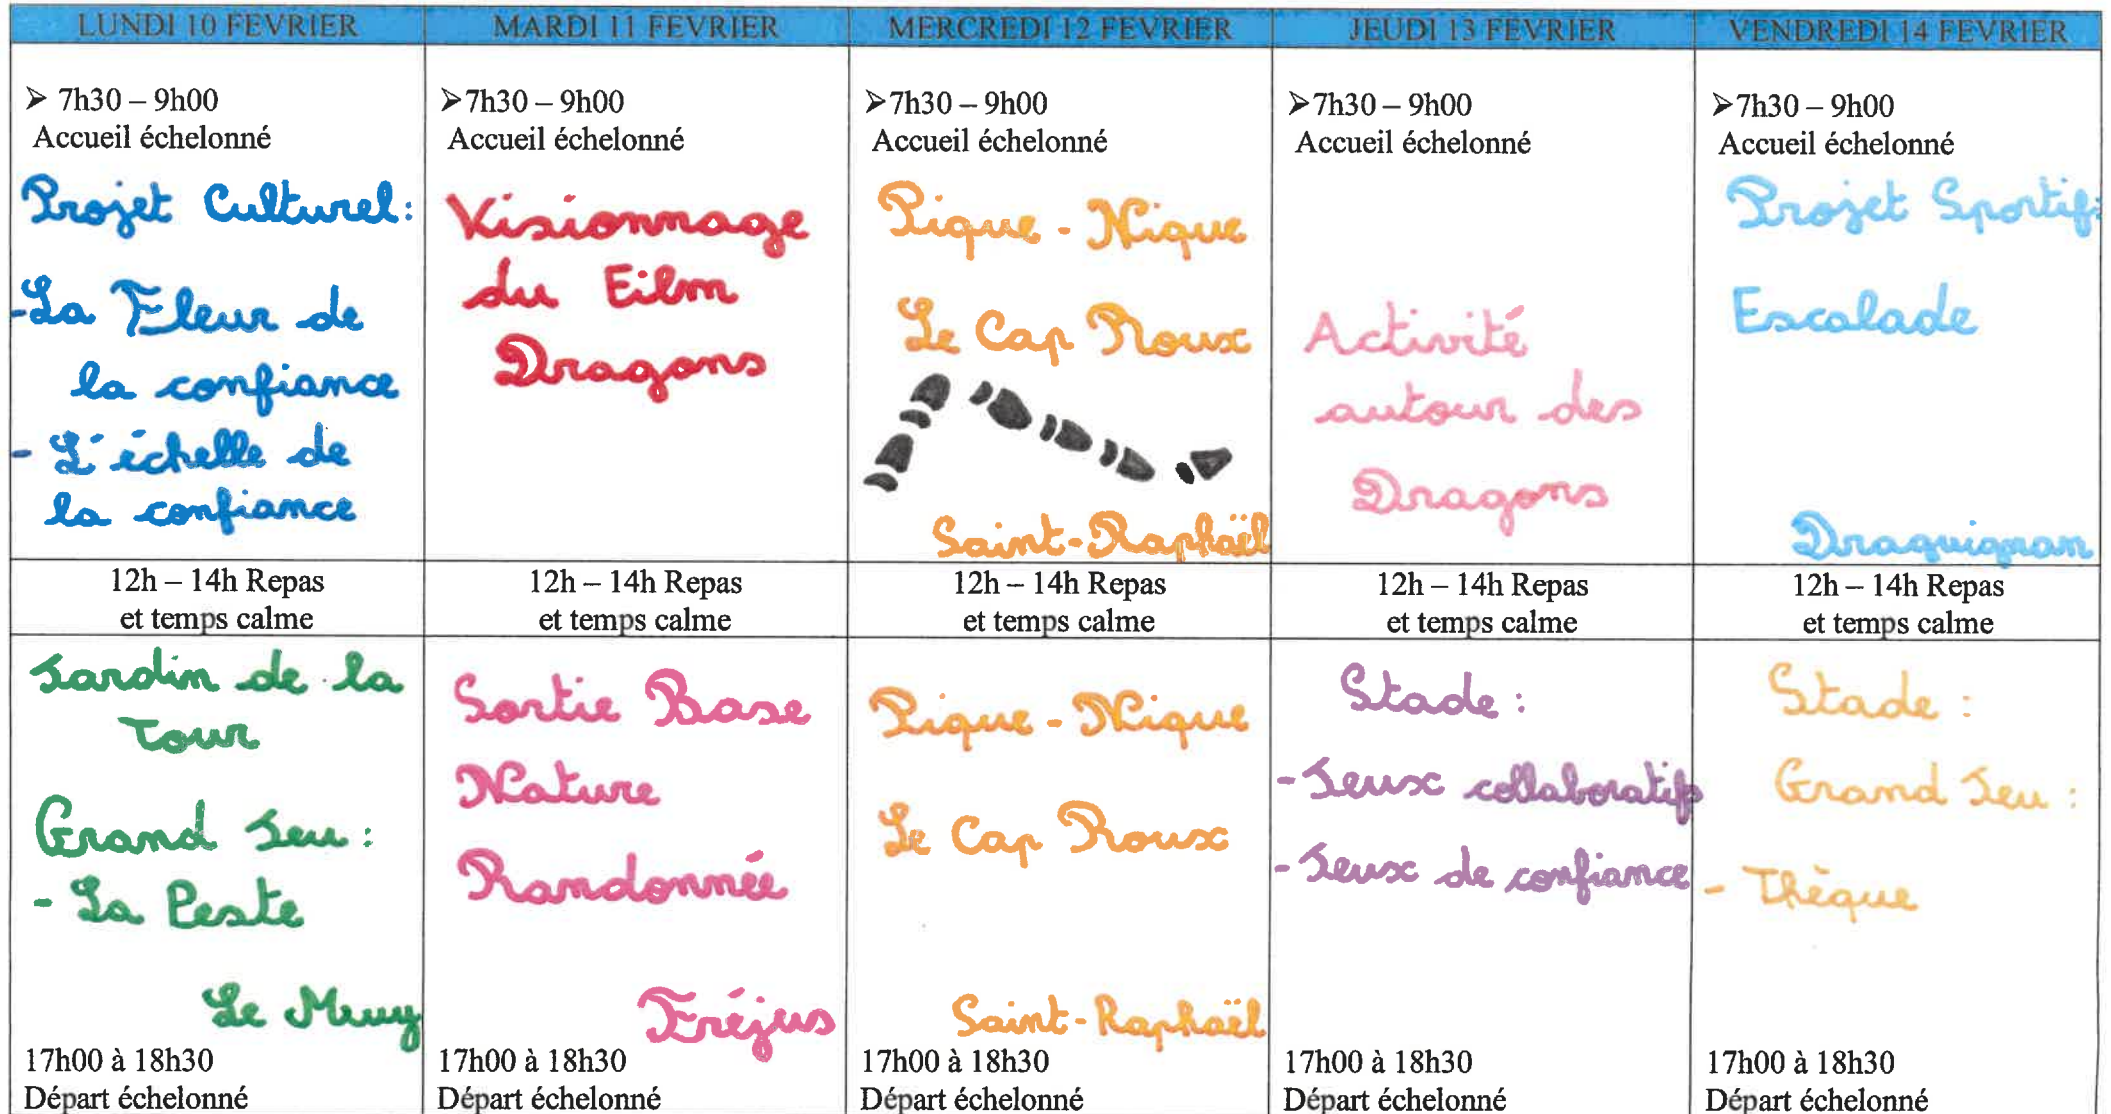 LUNDI 10 FEVRIER
MARDI 11 FEVRIER
MERCREDI 12 FEVRIER
JEUDI 13 FEVRIER
VENDREDI 14 FEVRIER
➢ 7h30 – 9h00
Accueil échelonné
Projet Culturel:
-La Fleur de
la confiance
- L'échelle de
la confiance
➢7h30 – 9h00
Accueil échelonné
Visionnage
du Film
Dragons
➢7h30 – 9h00
Accueil échelonné
Pique - Nique
Le Cap Roux
Saint-Raphaël
➢7h30 – 9h00
Accueil échelonné
Activité
autour des
Dragons
➢7h30 – 9h00
Accueil échelonné
Projet Sportif:
Escalade
Draguignan
12h – 14h Repas
et temps calme
12h – 14h Repas
et temps calme
12h – 14h Repas
et temps calme
12h – 14h Repas
et temps calme
12h – 14h Repas
et temps calme
Jardin de la
Tour
Grand Jeu :
- La Peste
Le Muy
17h00 à 18h30
Départ échelonné
Sortie Base
Nature
Randonnée
Fréjus
17h00 à 18h30
Départ échelonné
Pique - Nique
Le Cap Roux
Saint-Raphaël
17h00 à 18h30
Départ échelonné
Stade :
-Jeux collaboratifs
-Jeux de confiance
17h00 à 18h30
Départ échelonné
Stade :
Grand Jeu :
- Thèque
17h00 à 18h30
Départ échelonné